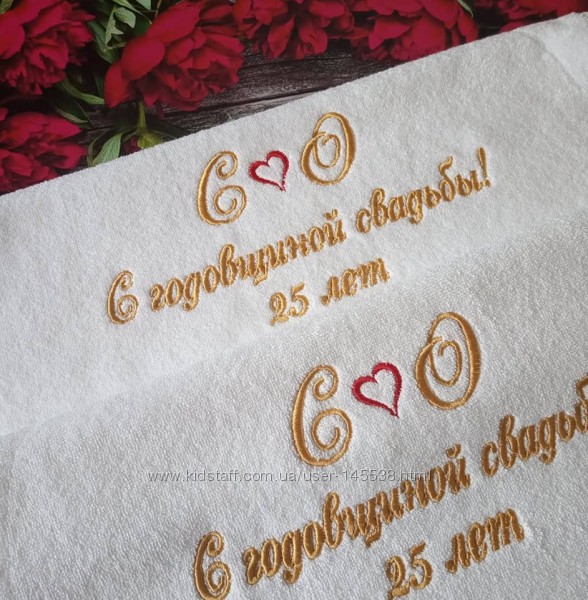 С О
С годовщиной свадьбы!
25 лет
С О
С годовщиной свадьб
25 лет
www.kidstaff.com.ua/user-145538.html